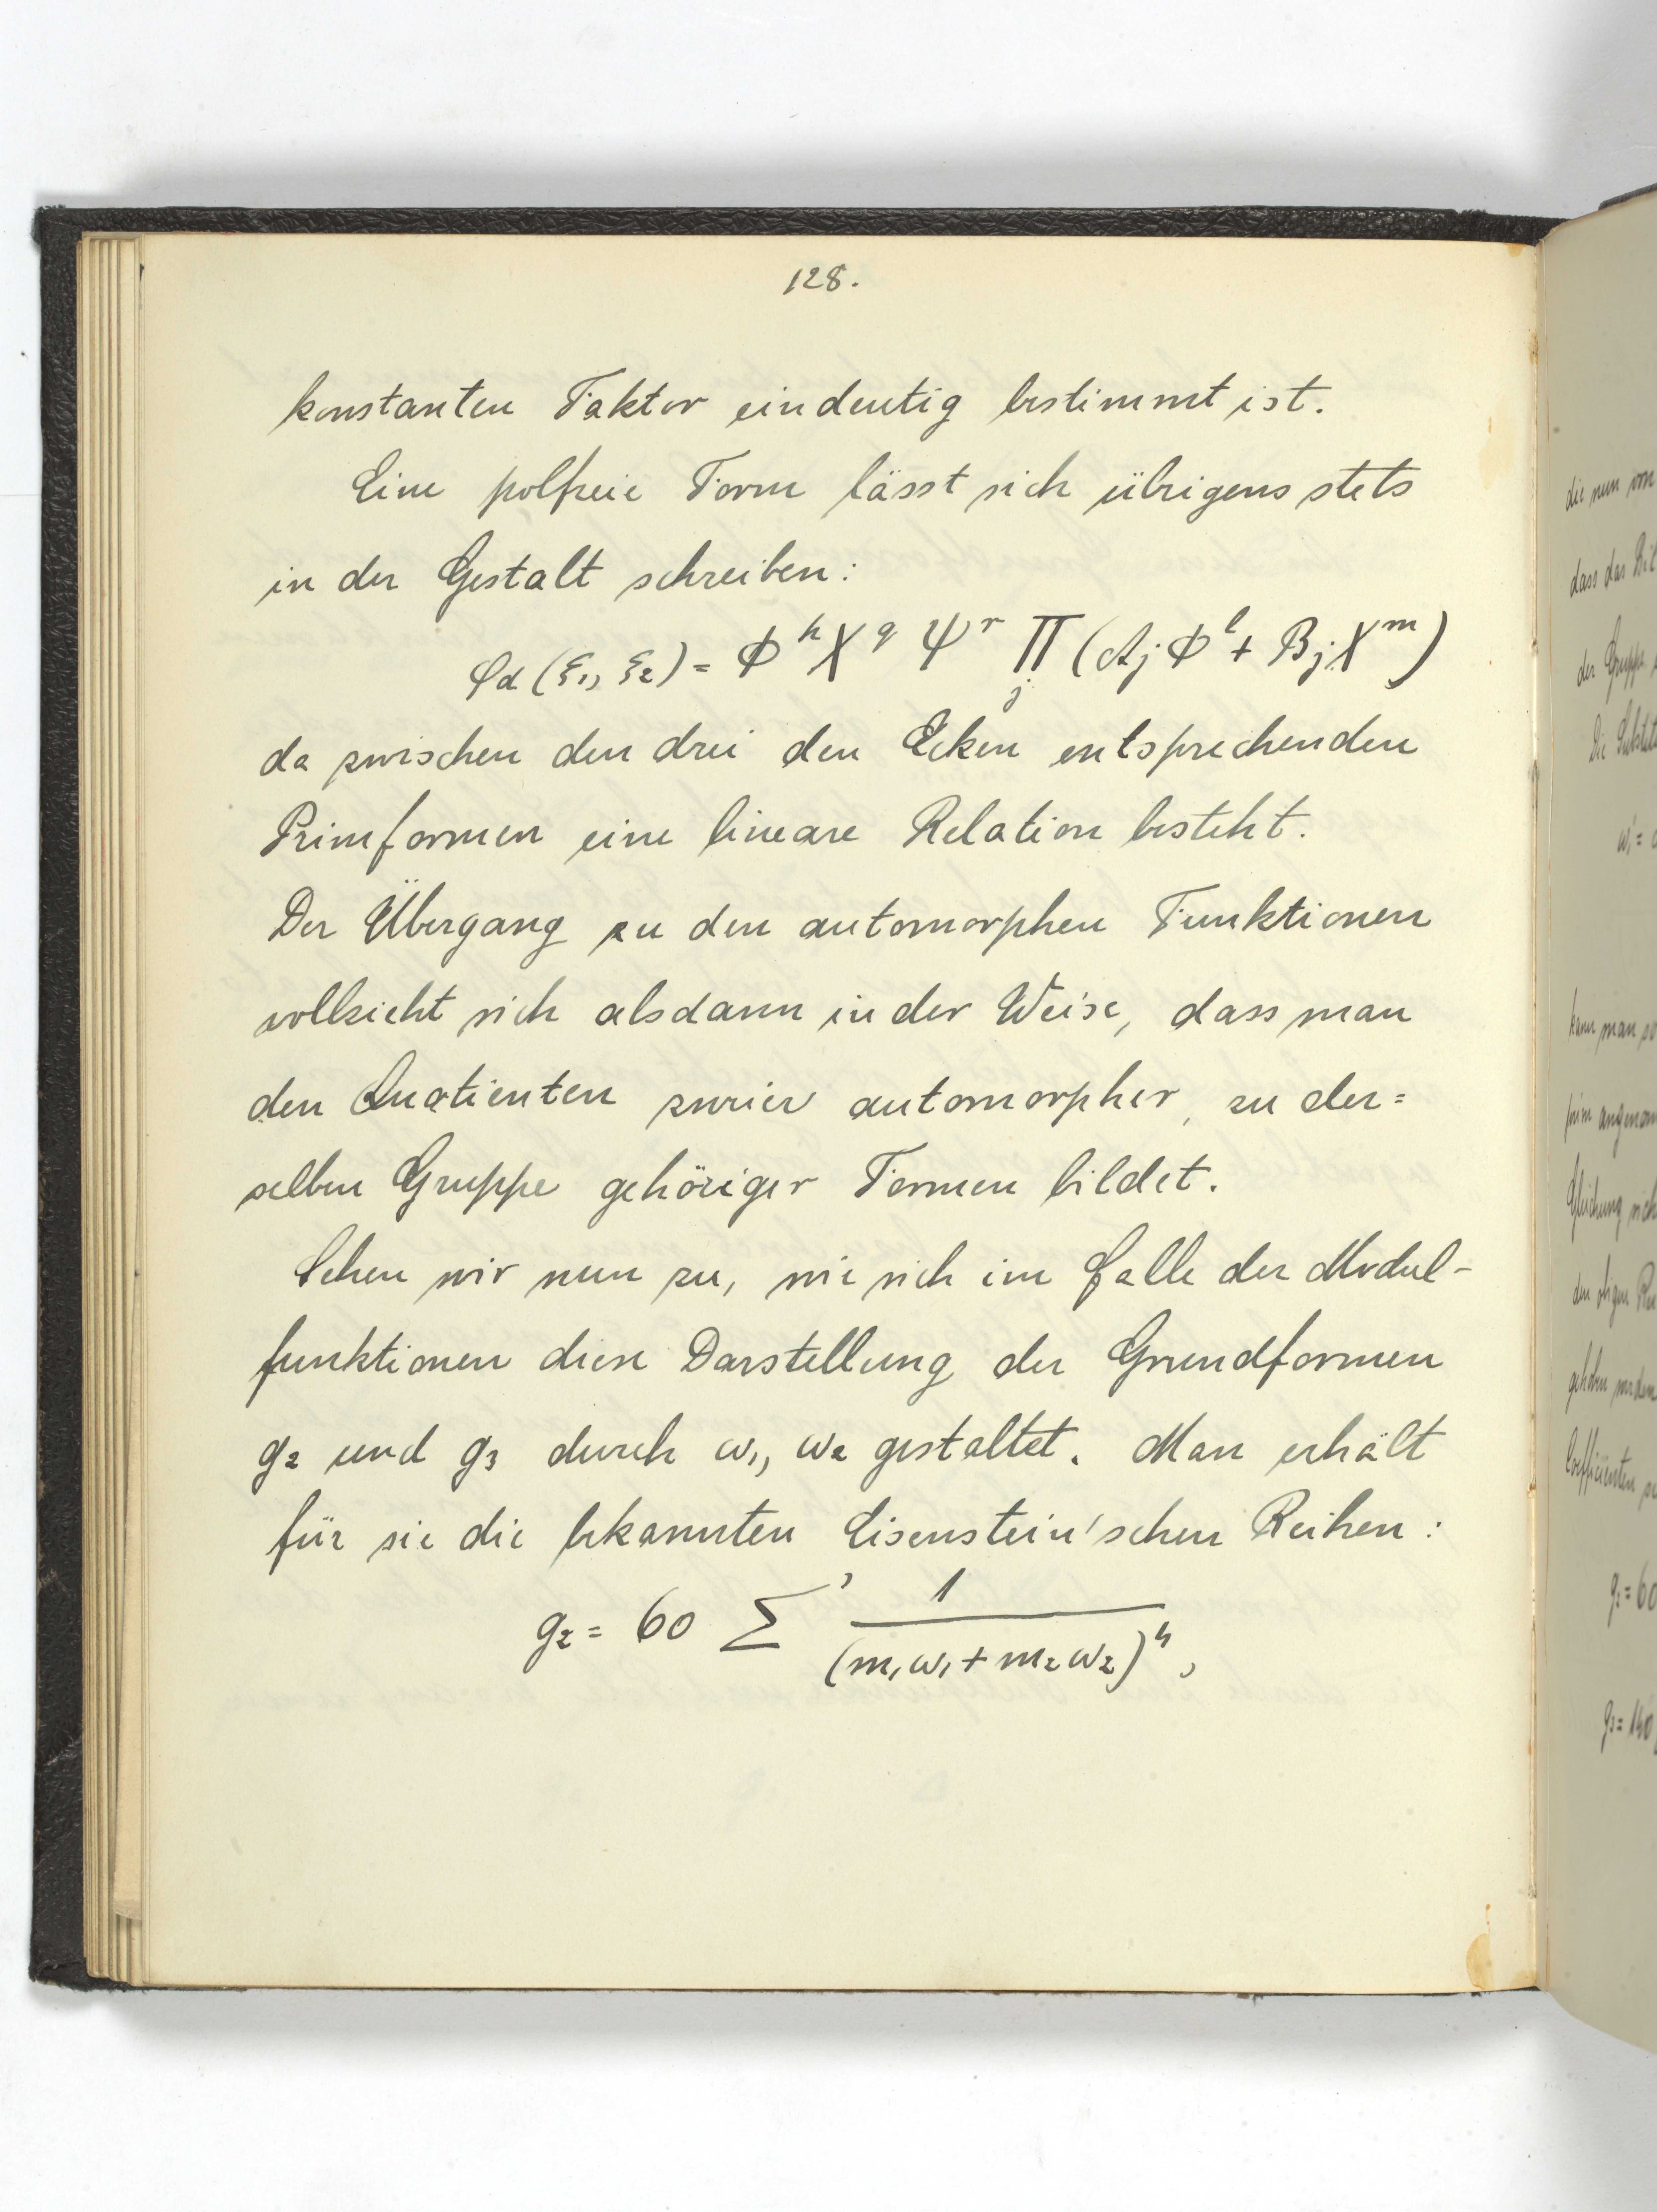 128.
konstanten Faktor eindeutig bestimmt ist.
Eine polfreie Form lässt sich übrigens stets
in der Gestalt schreiben:
φ_d (ξ₁, ξ₂) = Φ^h X^q Ψ^r ∏_j (A_j Φ^l + B_j X^m)
da zwischen den drei den Ecken entsprechenden
Primformen eine lineare Relation besteht.
Der Übergang zu den automorphen Funktionen
vollzieht sich alsdann in der Weise, dass man
den Quotienten zweier automorpher, zu der=
selben Gruppe gehöriger Formen bildet.
Sehen wir nun zu, wie sich im Falle der Modul-
funktionen diese Darstellung der Grundformen
g₂ und g₃ durch ω₁, ω₂ gestaltet. Man erhält
für sie die bekannten Eisenstein'schen Reihen:
g₂ = 60 Σ' 1/(m₁ω₁ + m₂ω₂)⁴,
die nun von
dass das
der Gruppe
kann man so
prim
Gleichung sich
den obigen
gehoben werden
Coefficienten
g₂ = 60
g₃ = 140